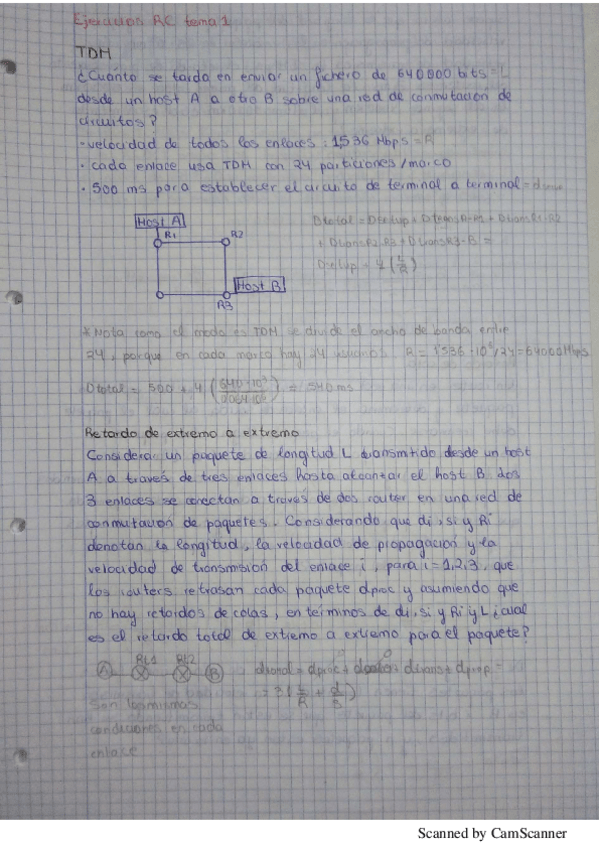 Ejercicios RC tema 1
TDM
¿Cuánto se tarda en enviar un fichero de 640000 bits = L
desde un host A a otro B sobre una red de conmutación de
circuitos?
· velocidad de todos los enlaces: 1,536 Mbps = R
· cada enlace usa TDM con 24 particiones/marco
· 500 ms para establecer el circuito de terminal a terminal =
Host A
R1
R2
Host B
R3
Dtotal = Dsetup + DtransA-R1 + DtransR1-R2
+ DtransR2-R3 + DtransR3-B =
Dsetup + 4 (L/R)
* Nota como el modo es TDM se divide el ancho de banda entre
24, porque en cada marco hay 24 usuarios. R = 1536·10⁶/24 = 64000Mbps
Dtotal = 500 + 4 (640·10³/0'064·10⁶) = 540 ms
Retardo de extremo a extremo
Considerar un paquete de longitud L transmitido desde un host
A a través de tres enlaces hasta alcanzar el host B. Los
3 enlaces se conectan a través de dos router en una red de
conmutación de paquetes. Considerando que di, si y Ri
denotan la longitud, la velocidad de propagación y la
velocidad de transmisión del enlace i, para i = 1,2,3, que
los routers retrasan cada paquete dproc y asumiendo que
no hay retardos de colas, en términos de di, si y Ri y L ¿cual
es el retardo total de extremo a extremo para el paquete?
A
B
dnodal = dproc + dcola + dtrans + dprop =
= 3 (L/R + d/s)
Son las mismas
condiciones en cada
enlace
Scanned by CamScanner